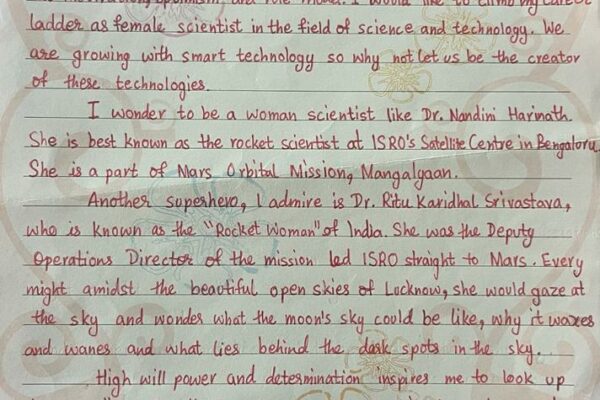 ladder as female scientist in the field of science and technology. We
are growing with smart technology so why not let us be the creator
of these technologies.
I wonder to be a woman scientist like Dr. Nandini Harinath.
She is best known as the rocket scientist at ISRO's Satellite Centre in Bengaluru.
She is a part of Mars Orbital Mission, Mangalgaan.
Another superhero, I admire is Dr. Ritu Karidhal Srivastava,
who is known as the "Rocket Woman" of India. She was the Deputy
Operations Director of the mission led ISRO straight to Mars. Every
might amidst the beautiful open skies of Lucknow, she would gaze at
the sky and wonder what the moon's sky could be like, why it waxes
and wanes and what lies behind the dark spots in the sky.
High will power and determination inspires me to look up